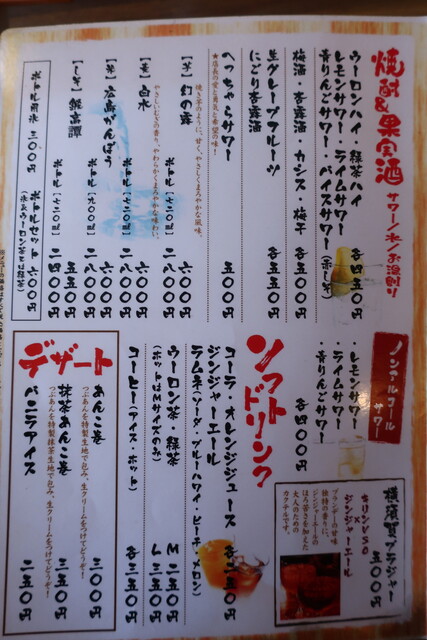 焼酎&果実酒
サワー/水/お湯割り
ウーロンハイ・緑茶ハイ
レモンサワー・ライムサワー
青りんごサワー・バイスサワー(赤しそ)
各四五〇円
梅酒・杏露酒・カシス・梅干
各五五〇円
生グレープフルーツ
にごり杏露酒
各五五〇円
へっちゃらサワー
五五〇円
★店長の愛と勇気と希望の味!
【芋】幻の露
六〇〇円
ボトル【七二〇㎖】二八〇〇円
焼き芋のように、甘く、やさしくまろやかな風味。
【麦】白水
六〇〇円
ボトル【七二〇㎖】二八〇〇円
やさしいむぎの香り、やわらかくまろやかな味わい。
【米】広島がんぼう
六〇〇円
二八〇〇円
【しそ】鍛高譚
五五〇円
ボトル【七二〇㎖】二四〇〇円
ボトル用氷 三〇〇円
ボトルセット 六〇〇円
(氷とウーロン茶又は緑茶)
ノンアルコールサワー
・レモンサワー
・ライムサワー
・青りんごサワー
各四〇〇円
横須賀ブラジャー
五〇〇円
ジンジャーエール
ブランデーの甘味
独特の香りに、
ジンジャーエールの
ほろ苦さを加えた
大人のための
カクテルです。
ソフトドリンク
コーラ・オレンジジュース
ジンジャーエール
ラムネ(ソーダ・ブルーハワイ・ピーチ・メロン)
各二五〇円
ウーロン茶 緑茶
(ホットはMサイズのみ)
M二五〇円
L三五〇円
コーヒー(アイス・ホット)
各三〇〇円
デザート
あんこ巻
三〇〇円
つぶあんを特製生地で包み、生クリームをつけてどうぞ!
抹茶あんこ巻
三五〇円
つぶあんを特製抹茶生地で包み、生クリームをつけてどうぞ!
バニラアイス
二五〇円